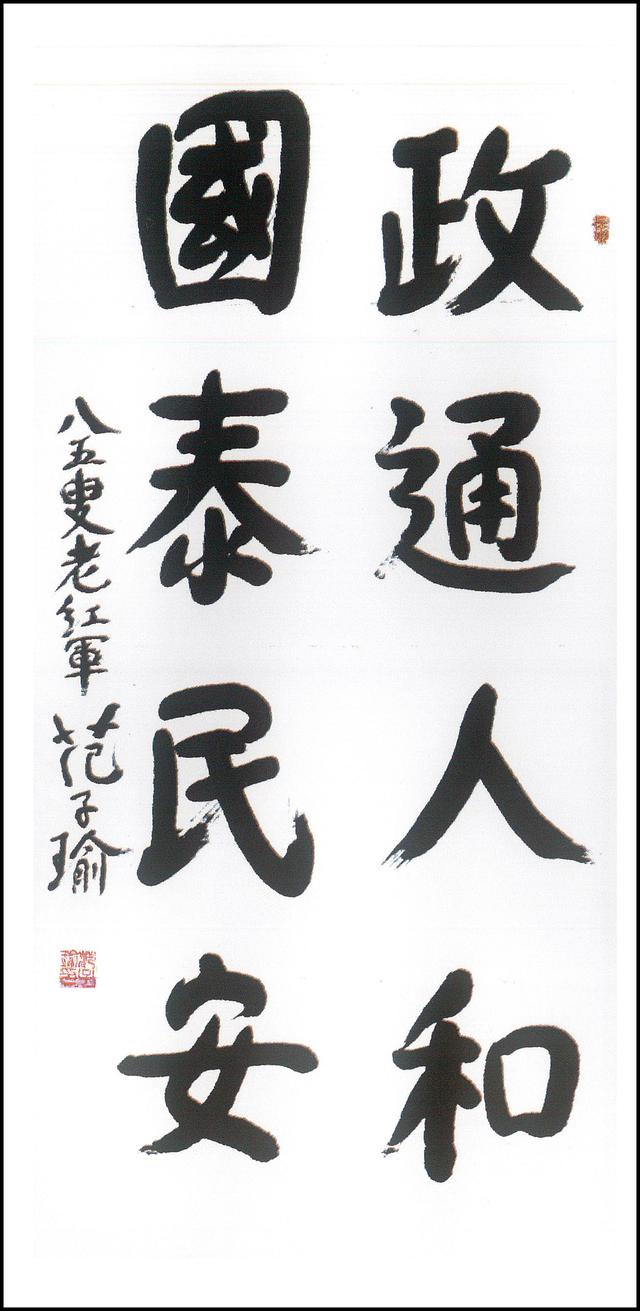 政通人和
國泰民安
八五叟老红軍范子瑜